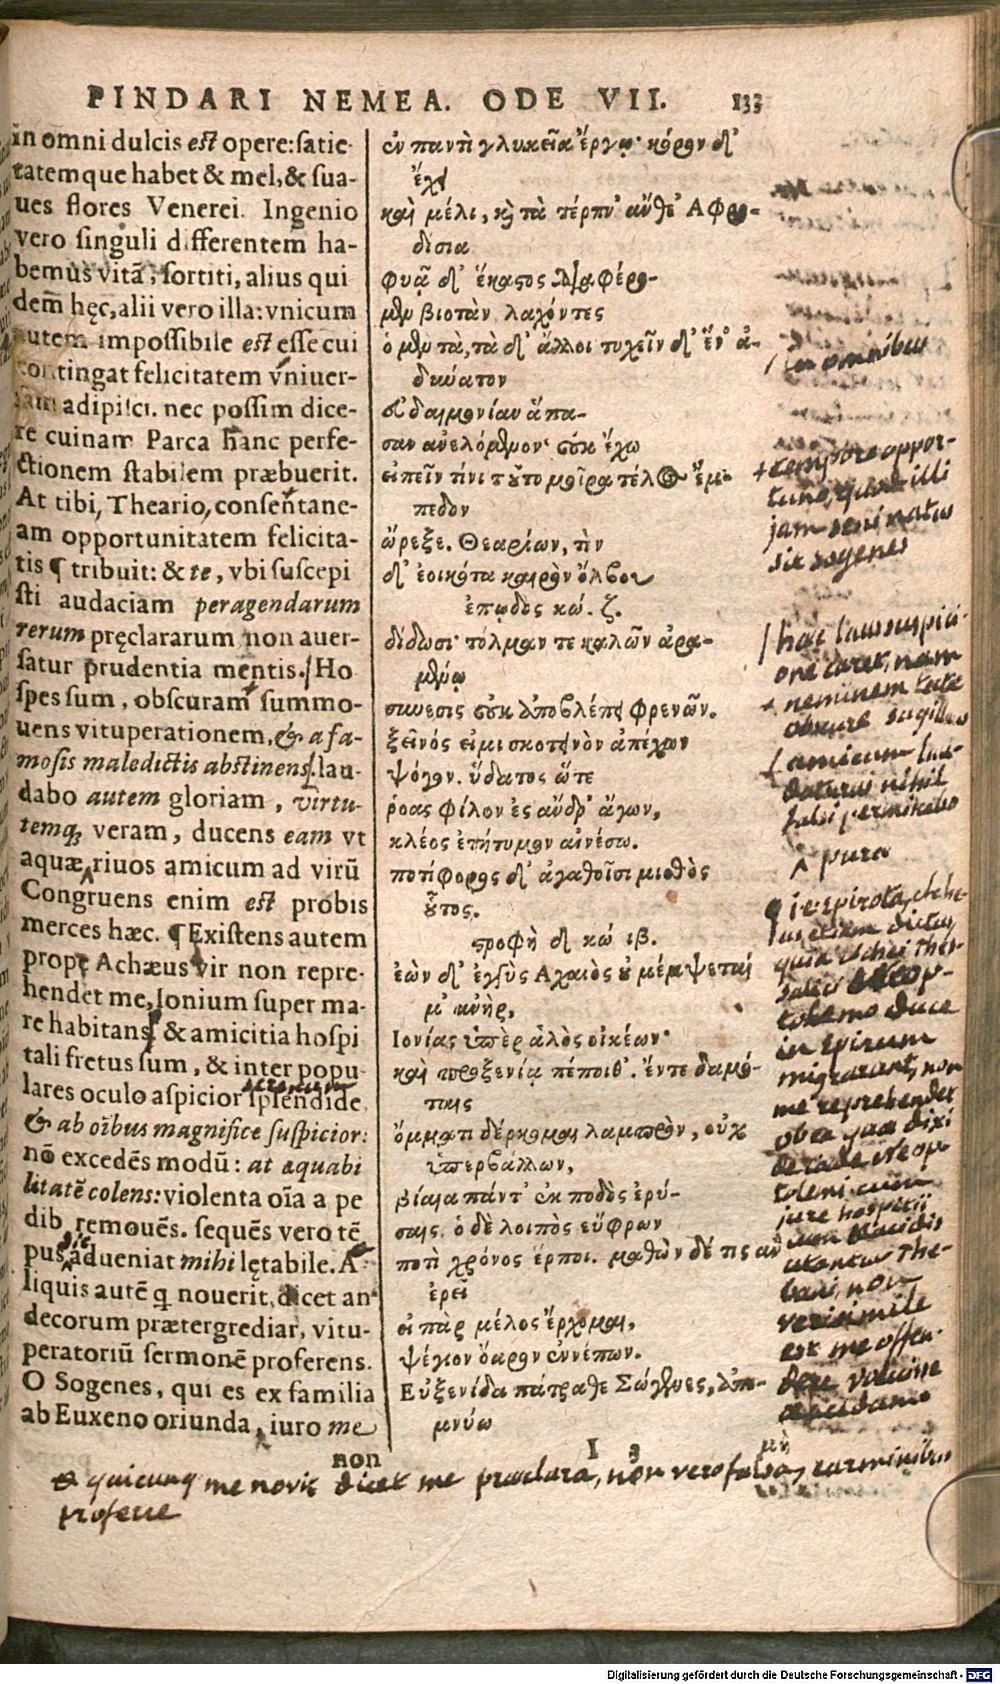 PINDARI NEMEA. ODE VII. 133
in omni dulcis est opere: satie-
tatemque habet & mel, & sua-
ues flores Venerei. Ingenio
vero singuli differentem ha-
bemus vitã, sortiti, alius qui
dem hęc, alii vero illa: vnicum
autem impossibile est esse cui
contingat felicitatem vniuer-
sam adipisci. nec possim dice-
re cuinam Parca hanc perfe-
ctionem stabilem præbuerit.
At tibi, Theario, consentane-
am opportunitatem felicita-
tis ¶ tribuit: & te, vbi suscepi
sti audaciam peragendarum
rerum pręclararum, non auer-
satur prudentia mentis. Ho
spes sum, obscuram summo-
uens vituperationem, & a fa-
mosis maledictis abstinens. lau-
dabo autem gloriam, virtu-
temq; veram, ducens eam vt
aquæ riuos amicum ad virũ
Congruens enim est probis
merces hæc. ¶ Existens autem
prope Achæus vir non repre-
hendet me, Ionium super ma-
re habitans, & amicitia hospi
tali fretus sum, & inter popu
lares oculo aspicior splendide,
& ab oĩbus magnifice suspicior:
nõ excedẽs modũ: at æquabi
litatẽ colens: violenta oĩa a pe
dib. remouẽs. sequẽs vero tẽ
pus adueniat mihi lętabile. A-
liquis autẽ q nouerit, dicet an
decorum prætergrediar, vitu-
peratoriũ sermonẽ proferens.
O Sogenes, qui es ex familia
ab Euxeno oriunda, iuro me
non
ἐν παντὶ γλυκεῖα ἔργῳ· κόρον δ'
ἔχει
καὶ μέλι, κὴ τὰ τέρπν' ἄνθε' Ἀφρο-
δίσια
φυᾷ δ' ἕκαστος διαφέρο-
μεν βιοτὰν λαχόντες
ὁ μὲν τὰ, τὰ δ' ἄλλοι τυχεῖν δ' ἕν' ἀ-
δύνατον
εὐδαιμονίαν ἅπα-
σαν ἀνελόμενον· οὐκ ἔχω
εἰπεῖν τίνι τοῦτο μοῖρα τέλος ἔμ-
πεδον
ὤρεξε. Θεαρίων, τὶν
δ' ἐοικότα καιρὸν ὄλβου
ἐπῳδὸς κώ. ζ.
δίδωσι· τόλμαν τε καλῶν ἀρα-
μένῳ
σύνεσις οὐκ ἀποβλέπει φρενῶν.
ξεῖνός εἰμι σκοτεινὸν ἀπέχων
ψόγον. ὕδατος ὥτε
ῥοὰς φίλον ἐς ἄνδρ' ἄγων,
κλέος ἐτήτυμον αἰνέσω.
ποτίφορος δ' ἀγαθοῖσι μισθὸς
οὗτος.
στροφὴ δ κώ ιβ.
ἐὼν δ' ἐγγὺς Ἀχαιὸς οὐ μέμψεταί
μ' ἀνὴρ,
Ἰονίας ὑπὲρ ἁλὸς οἰκέων·
καὶ προξενίᾳ πέποιθ'. ἔντε δαμό-
ταις
ὄμματι δέρκομαι λαμπρὸν, οὐχ
ὑπερβάλλων,
βίαια πάντ' ἐκ ποδὸς ἐρύ-
σαις. ὁ δὲ λοιπὸς εὔφρων
ποτὶ χρόνος ἕρποι. μαθὼν δέ τις ἂν
ἐρεῖ
εἰ πὰρ μέλος ἔρχομαι,
ψέγιον ὄαρον ἐννέπων.
Εὐξενίδα πάτραθε Σώγενες, ἀπο-
μνύω
I 3
in omnibus
+ tempore oppor-
tuno, quod illi
jam seni natus
sit sogenes
hac
caret, nam
neminem
obscure
amicum lau-
daturus nihil
falsi permiscebo
^ pura
i.e. epirota,
etiam dictus
quia
duce
in Epirum
migrarant, non
me reprehendet
ob ea quæ dixi
jure hospitii
The-
bani, non
verisimile
est me offen-
dere
quicunq me novit dicet me præclara, non vero falsa, carminibus
proferre
Digitalisierung gefördert durch die Deutsche Forschungsgemeinschaft - DFG